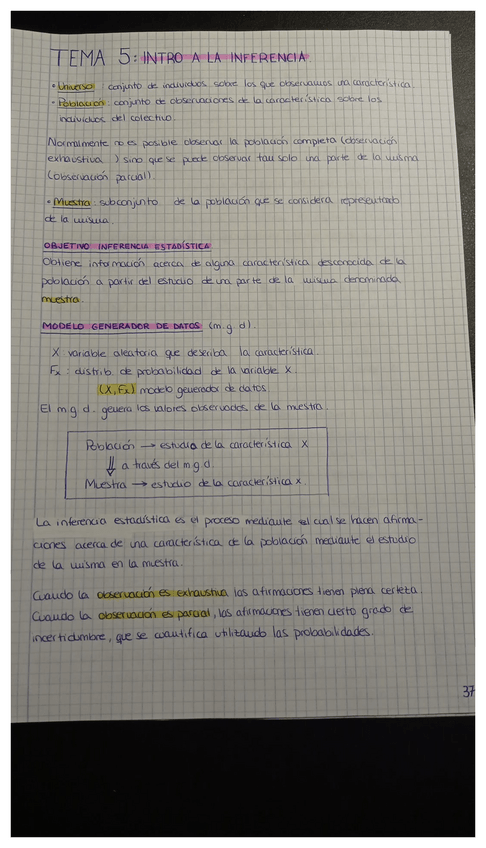 TEMA 5: INTRO A LA INFERENCIA.
• Universo : conjunto de individuos sobre los que observamos una característica.
• Población : conjunto de observaciones de la característica sobre los
individuos del colectivo.
Normalmente no es posible observar la población completa (observación
exhaustiva ) sino que se puede observar tan solo una parte de la misma
(observación parcial).
• Muestra : subconjunto de la población que se considera representativo
de la misma.
OBJETIVO INFERENCIA ESTADÍSTICA
Obtiene información acerca de alguna característica desconocida de la
población a partir del estudio de una parte de la misma denominada
muestra.
MODELO GENERADOR DE DATOS (m.g.d).
X variable aleatoria que describa la característica.
Fx : distrib. de probabilidad de la variable X.
(X, Fx) modelo generador de datos.
El m.g.d. genera los valores observados de la muestra.
Población → estudio de la característica X
⇓ a través del m.g.d.
Muestra → estudio de la característica x.
La inferencia estadística es el proceso mediante el cual se hacen afirma-
ciones acerca de una característica de la población mediante el estudio
de la misma en la muestra.
Cuando la observación es exhaustiva las afirmaciones tienen plena certeza.
Cuando la observación es parcial, las afirmaciones tienen cierto grado de
incertidumbre, que se cuantifica utilizando las probabilidades.
37